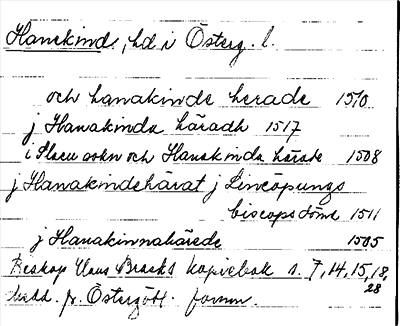 Hanekinds, hd i Österg. l.
och hanakinde herade 1510
j Hanakinda häradh 1517
i Slacu sokn och Hanakinda härade 1508
j Hanakindehärat j Lincöpungs
biscops döme 1511
j Hanakinnahärede 1505
Biskop Hans Brasks kopiebok s. 7, 14, 15, 18,
28
medd. fr. Östergötl. fornm.